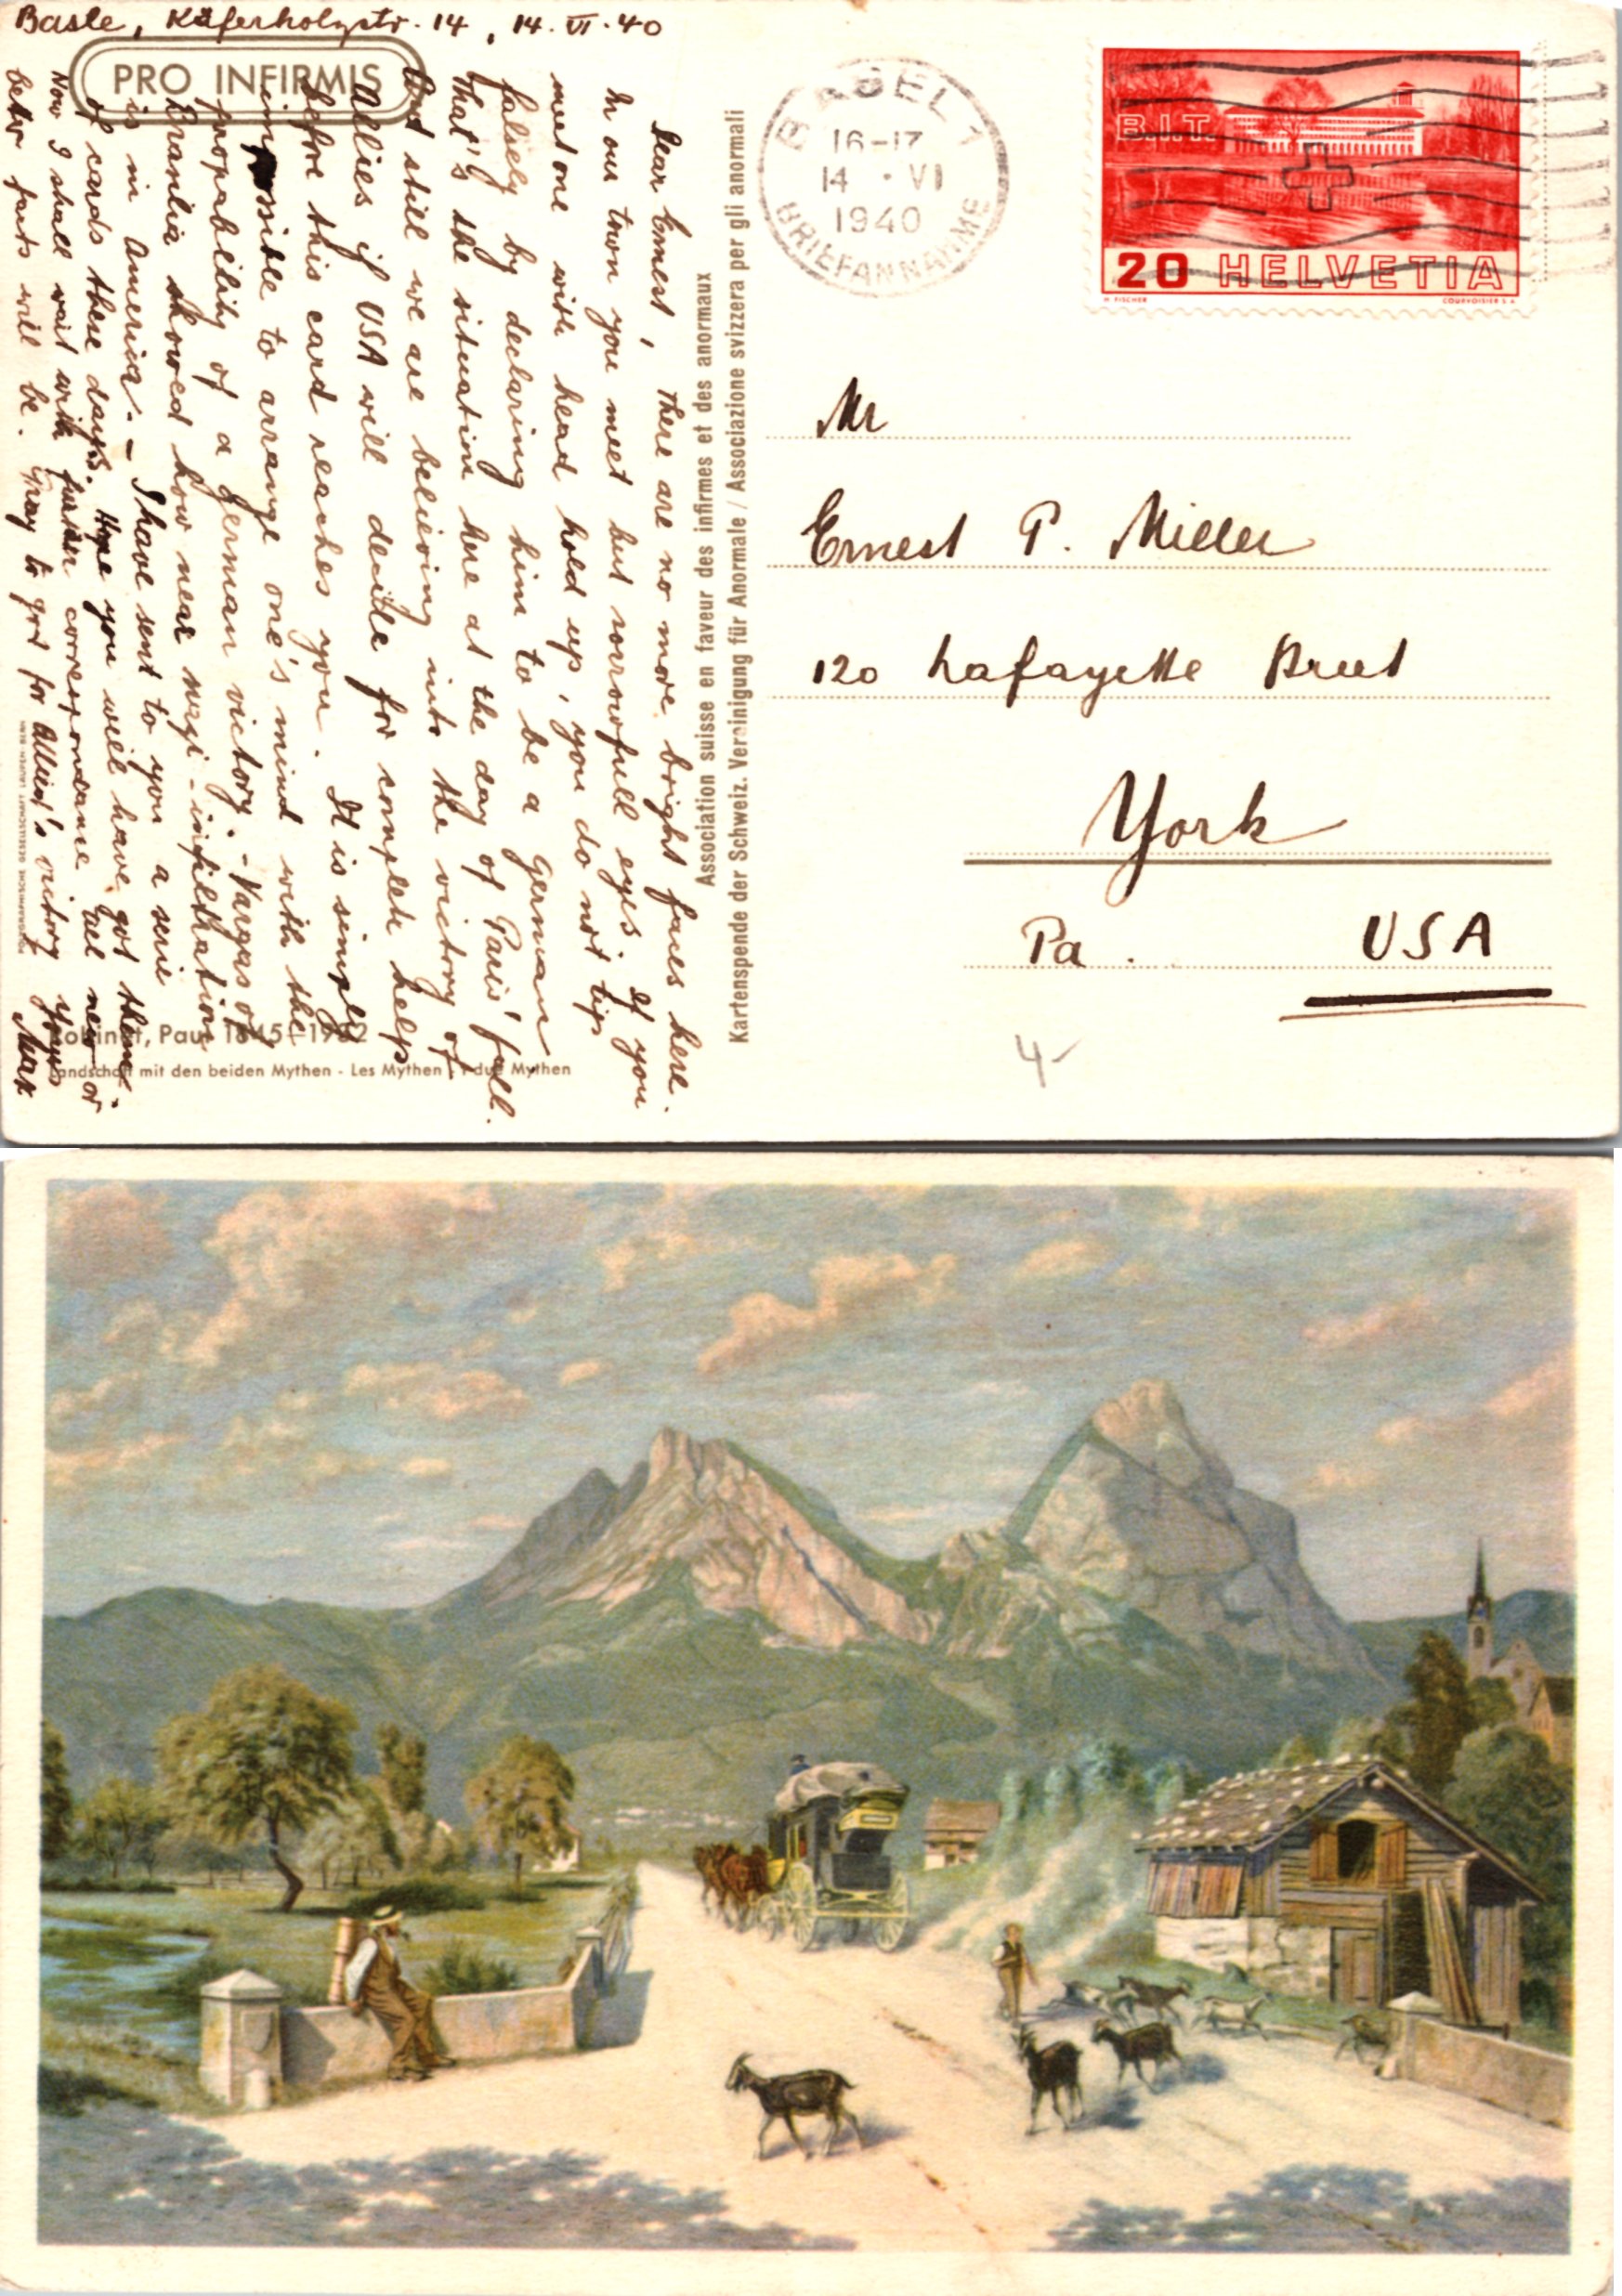 Basle, Käferholzstr. 14, 14. VI. 40
PRO INFIRMIS
Dear Ernest, there are no more bright faces here.
In our town you meet but sorrowfull eyes. If you
meet one with head hold up, you do not tip
falsely by declaring him to be a German
That's the situation here at the day of Paris' fall.
And still we are believing into the victory of
Allies if USA will decide for complete help
before this card reaches you. It is simply
impossible to arrange one's mind with the
propability of a German victory. - Vargas of
Brasilia showed how near nazi-infiltration
is in America. - I have sent to you a serie
of cards these days. Hope you will have got them.
Now I shall wait with further correspondance till new or
better facts will be. Pray to god for Allied's victory yours
Max
Robinet, Paul 1845-1932
Landschaft mit den beiden Mythen - Les Mythen - I due Mythen
POLYGRAPHISCHE GESELLSCHAFT LAUPEN-BERN
Association suisse en faveur des infirmes et des anormaux
Kartenspende der Schweiz. Vereinigung für Anormale / Associazione svizzera per gli anormali
BASEL 1
16-17
14 · VI
1940
BRIEFANNAHME
B.I.T.
20 HELVETIA
H. FISCHER
COURVOISIER S.A.
Mr
Ernest P. Miller
120 Lafayette Street
York
Pa. USA
4-